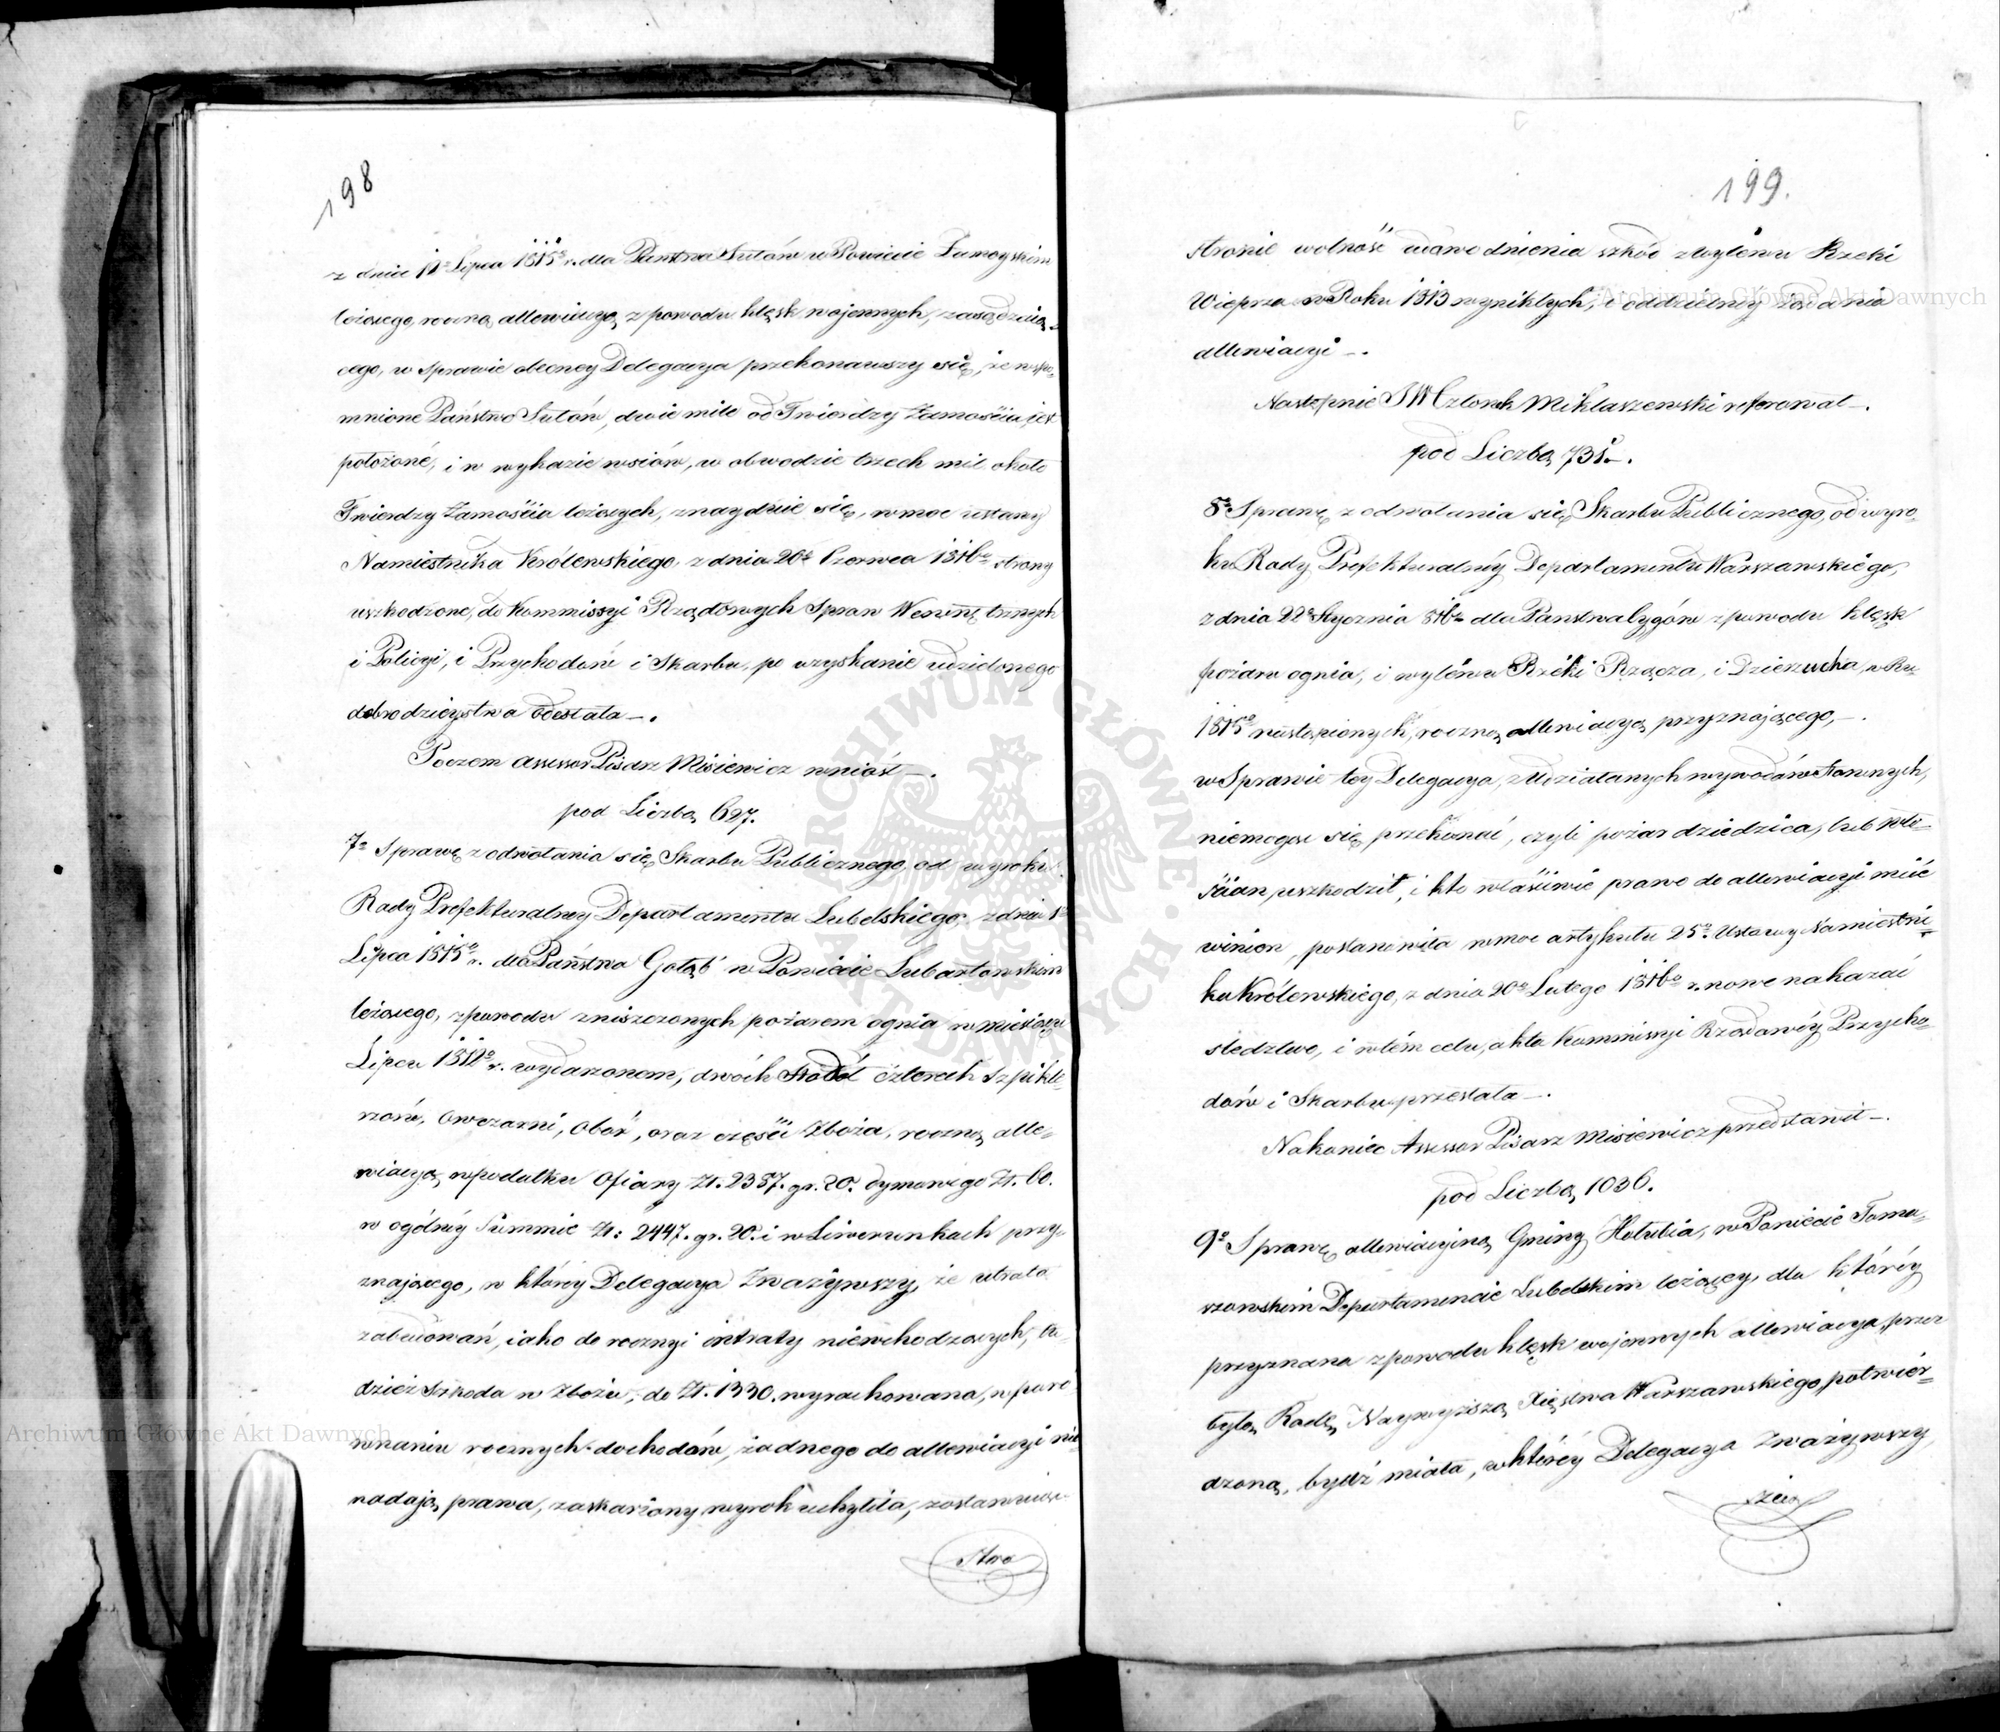 198
z dnia 12º Lipca 1815º r. dla Państwa Sułów w Powiecie Zamoyskim
leżącego, roczną allewiacyą z powodu klęsk wojennych, zasądzaią-
cego, w sprawie obecney Delegacya przekonawszy się, że wspo-
mnione Państwo Sułów, dwie mile od Twierdzy Zamościa, jest
położone, i w wykazie wsiów, w obwodzie trzech mil, około
Twierdzy Zamościa leżących, znayduie się, w moc ustawy
Namiestnika Królewskiego, z dnia 20º Czerwca 1816º strony
uszkodzone, do Kommissyi Rządowych Spraw Wewnętrznych
i Policyi, i Przychodów i Skarbu, po uzyskanie udzielonego
dobrodzieystwa odesłała –.
Poczem Assessor Pisarz Misiewicz wniósł –.
pod Liczbą 627.
7º Sprawę z odwołania się Skarbu Publicznego, od wyroku
Rady Prefekturalney Departamentu Lubelskiego, z dnia 1º
Lipca 1815º r. dla Państwa Gołąb w Powiecie Lubartowskim
leżącego, z powodu zniszczonych pożarem ognia w miesiącu
Lipcu 1812º r. wydarzonem, dwóch Stodół czterech Szpikle-
rzów, Owczarni, Obór, oraz części Zboża, roczną alle-
wiacyą w podatku Ofiary Zł. 2387. gr. 20. dymowego Zł. 60.
w ogólnéy Summie Zł: 2447. gr. 20. i w Liwerunkach przy-
znającego, w którey Delegacya Zważywszy, że utrata
zabudowań, iako do rocznyi intraty niewchodzących, tu-
dzież Szkoda w Zbożu, do Zł. 1330. wyrachowana, w poró-
wnaniu rocznych dochodów, żadnego do allewiacyi nie-
nadają prawa, zaskarżony wyrok uchyliła, zostawuiąc
stro
199.
stronie wolność udowodnienia szkód z wylewu Rzeki
Wieprza w Roku 1813 wynikłych, i oddzielney żądania
allewiacyi –.
Następnie JW Członek Miklaszewski referował –.
pod Liczbą 731. –.
8º Sprawę z odwołania się Skarbu Publicznego, od wyro-
ku Rady Prefekturalnéy Departamentu Warszawskiego,
z dnia 22º Stycznia 816 dla Państwa Cygów z powodu klęsk
pożaru ognia, i wylewu Rzéki Rządza, i Dzierzucha, w Ru
1815º nastąpionych, roczną allewiacyą przyznającego, –.
w Sprawie tey Delegacya, z udziałanych wywodów stronnych,
niemogąc się przekonać, czyli pożar dziedzica, lub Wło-
ścian, uszkodził, i kto właściwie prawo do allewiacyi mieć
winien, postanowiła w moc artykułu 25º Ustawy Namiestni-
ka Królewskiego, z dnia 20º Lutego 1816º r. nowe nakazać
śledztwo, i w tém celu, akta Kommissyi Rządowéy Przycho-
dów i Skarbu przesłała –.
Nakoniec Assessor Pisarz Misiewicz przedstawił –.
pod Liczbą 1036.
9º Sprawę allewiacyiną Gminy Hołubia, w Powiecie Toma-
szowskim Departamencie Lubelskim leżącey, dla któréy
przyznana z powodu klęsk wojennych allewiacya, przez
byłą Radę Naywyższą Xięstwa Warszawskiego, potwier-
dzoną, bydź miała, w któréy Delegacya Zważywszy,
żeią